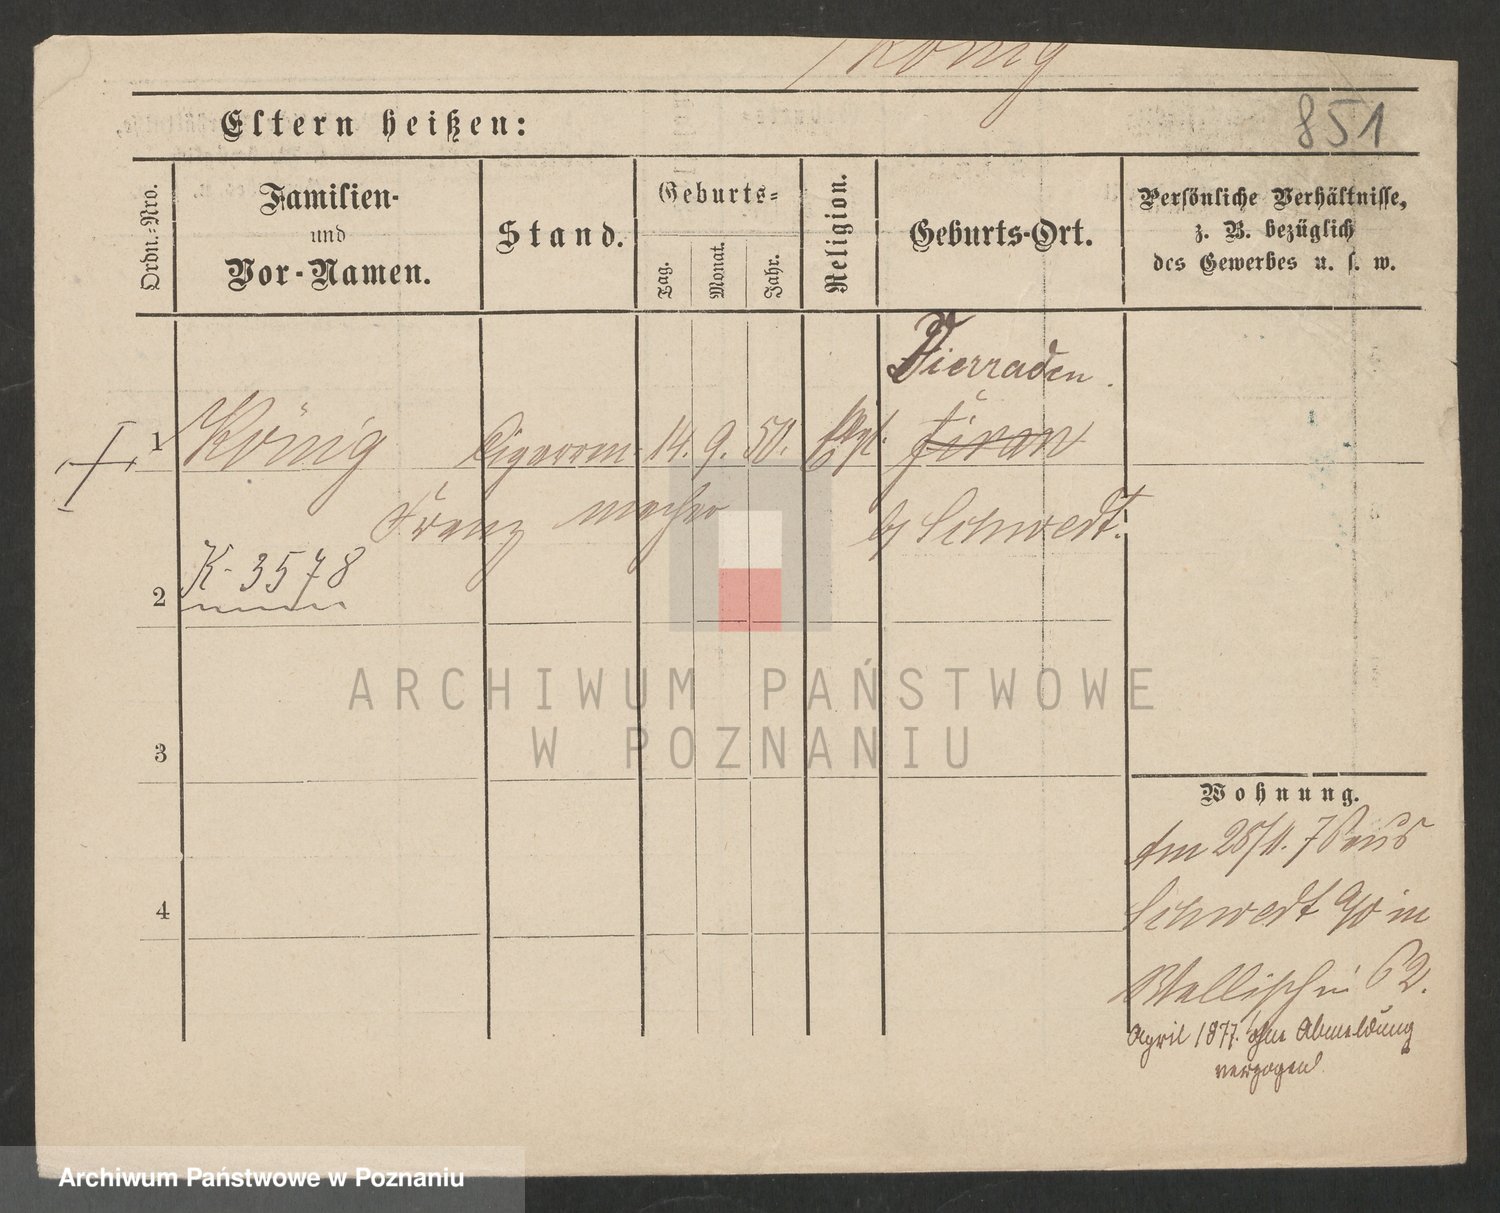 König
851
Eltern heißen:
Ordn.-Nro.
Familien-
und
Vor-Namen.
Stand.
Geburts-
Tag.
Monat.
Jahr.
Religion.
Geburts-Ort.
Persönliche Verhältnisse,
z. B. bezüglich
des Gewerbes u. s. w.
Vierraden.
1 König Cigarren- 14. 9. 50.
Franz macher b/ Schwedt.
K. 3578
2
ARCHIWUM PAŃSTWOWE
W POZNANIU
3
Wohnung.
Am 25/11. 76 aus
4
Schwedt in
Wallischei 62.
April 1877 ohne Abmeldung
verzogen.
Archiwum Państwowe w Poznaniu